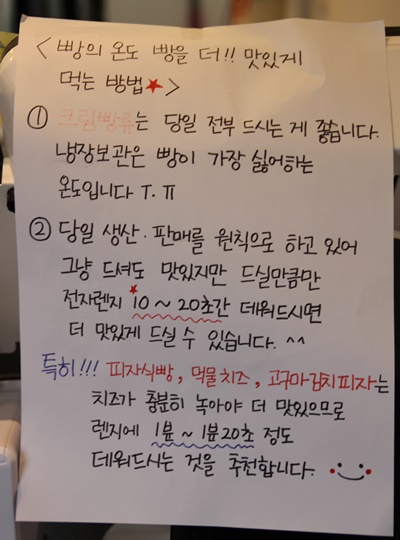 < 빵의 온도 빵을 더!! 맛있게
먹는 방법★>
① 크림빵류는 당일 전부 드시는 게 좋습니다.
냉장보관은 빵이 가장 싫어하는
온도입니다 T.π
② 당일 생산·판매를 원칙으로 하고 있어
그냥 드셔도 맛있지만 드실만큼만
전자렌지 10 ~ 20초간 데워드시면
더 맛있게 드실 수 있습니다. ^^
특히!!! 피자식빵, 먹물치즈, 고구마겁치피자는
치즈가 충분히 녹아야 더 맛있으므로
렌지에 1분 ~ 1분20초 정도
데워드시는 것을 추천합니다.